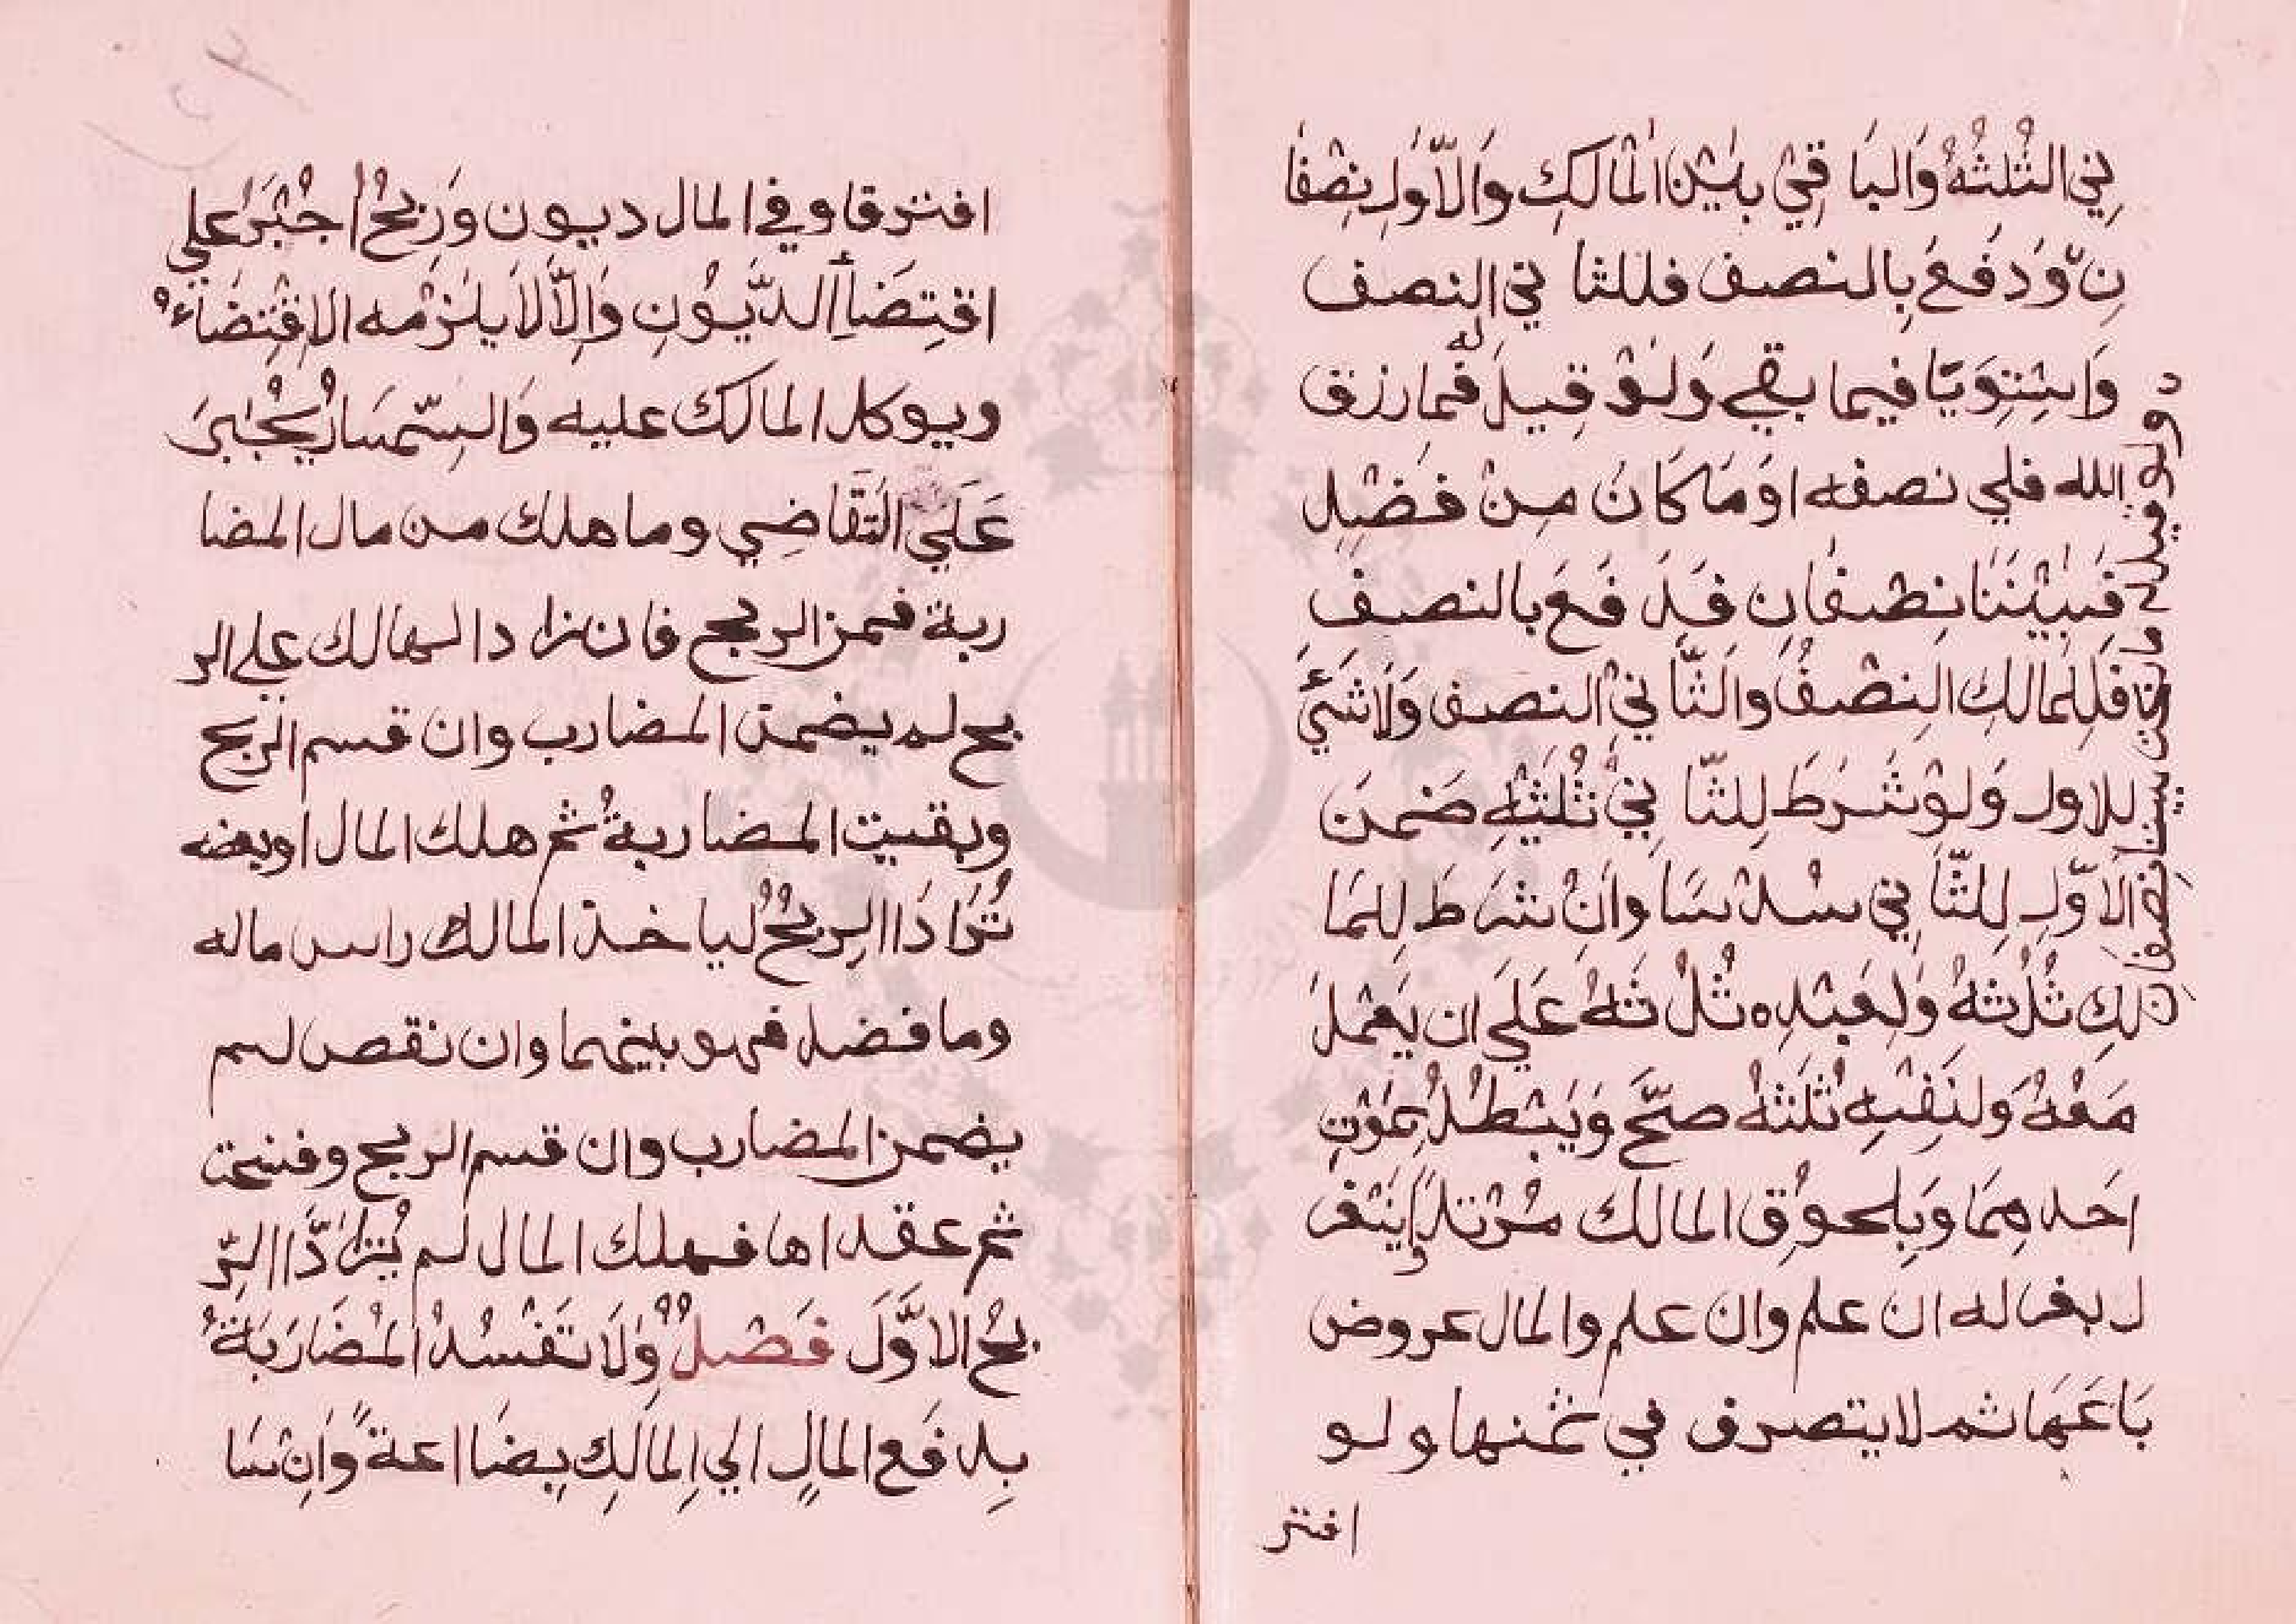 ني الثُلثُهُ وَالبَا قِيْ بَيْنَ الْمَالِكِ وَالاَّوَلِ نِصْفَا
نِ وَدَفَعَ بِالنصف فللثا ني النصف
وَاسْتِوَيَا فيما بقي وَلَوْ قِيلَ له فما رزق
الله فلي نصفه اوَمَا كَانَ مِنْ فَضْلٍ
فَبَيْنَنَا نِصْفَانِ فَدَفَعَ بالنصف
فَلِلْمَالكِ النِصْفُ وَالثَّا نِي النصف وَلَا شَيْءَ
للاول وَلَوْ شَرَطَ لِلثَّا نِي ثُلُثَيْهِ ضَمِنَ
الاَوَّلِ لِلثَّا نِي سُدْسَا وَانْ شَرَطَ لِلمَا
لِكِ ثُلُثَهُ وَلِعَبْدِه ثُلُثَهُ عَلَي ان يَعْمَلَ
مَعَهُ وَلنَفْسِهِ ثُلَثَهُ صَحَّ وَيَبْطُلُ بِمَوْتِ
اَحَدِهِمَا وَبِلحوُقِ المالك مُرْتَدًا وَيَنْعَزِ
ل بعزله ان علم وان علم والمال عروض
بَاعَهَا ثم لا يتصرف في ثمنها ولو
افتر
ولو قيل ما كان بيننا نصفان
افترقا وفي المال ديون وَرِبحٌ اُجْبَرَ علي
اقتِضَأِ الدُّيُونِ وَاِلاَّ لَا يلزَمْه الاِقْتِضَاءُ
ويوكل المالك عليه وَالسِّمسَارُ يُجْبَرَ
عَلَي التَقَاضِي وما هلك من مال المضا
ربة فمن الربح فان زاد الهالك علي الر
بح لم يضمن المضارب وان قسم الربح
وبقيت المضاربةُ ثم هلك المال او بعضه
تَرَادَا الرِبْحُ ليا خذ المالك راس ماله
وما فضل فهو بينهما وان نقص لم
يضمن المضارب وان قسم الربح وفسخت
ثم عقداها فهلك المال لم يُتَرَادَّا الرِّ
بْحُ الاَوَّلَ فَصْلٌ وَلَا تَفْسُدُ الْمُضَارَبَةُ
بِدفَع المالِ اليِ المَالِكِ بِضَا اعةً وَاِنْ سَا